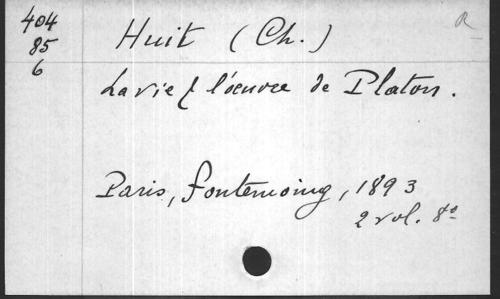 404
85
6
Huit (Ch.)
R
La vie & l'œuvre de Platon.
Paris, Fontemoing, 1893
2 vol. 8º